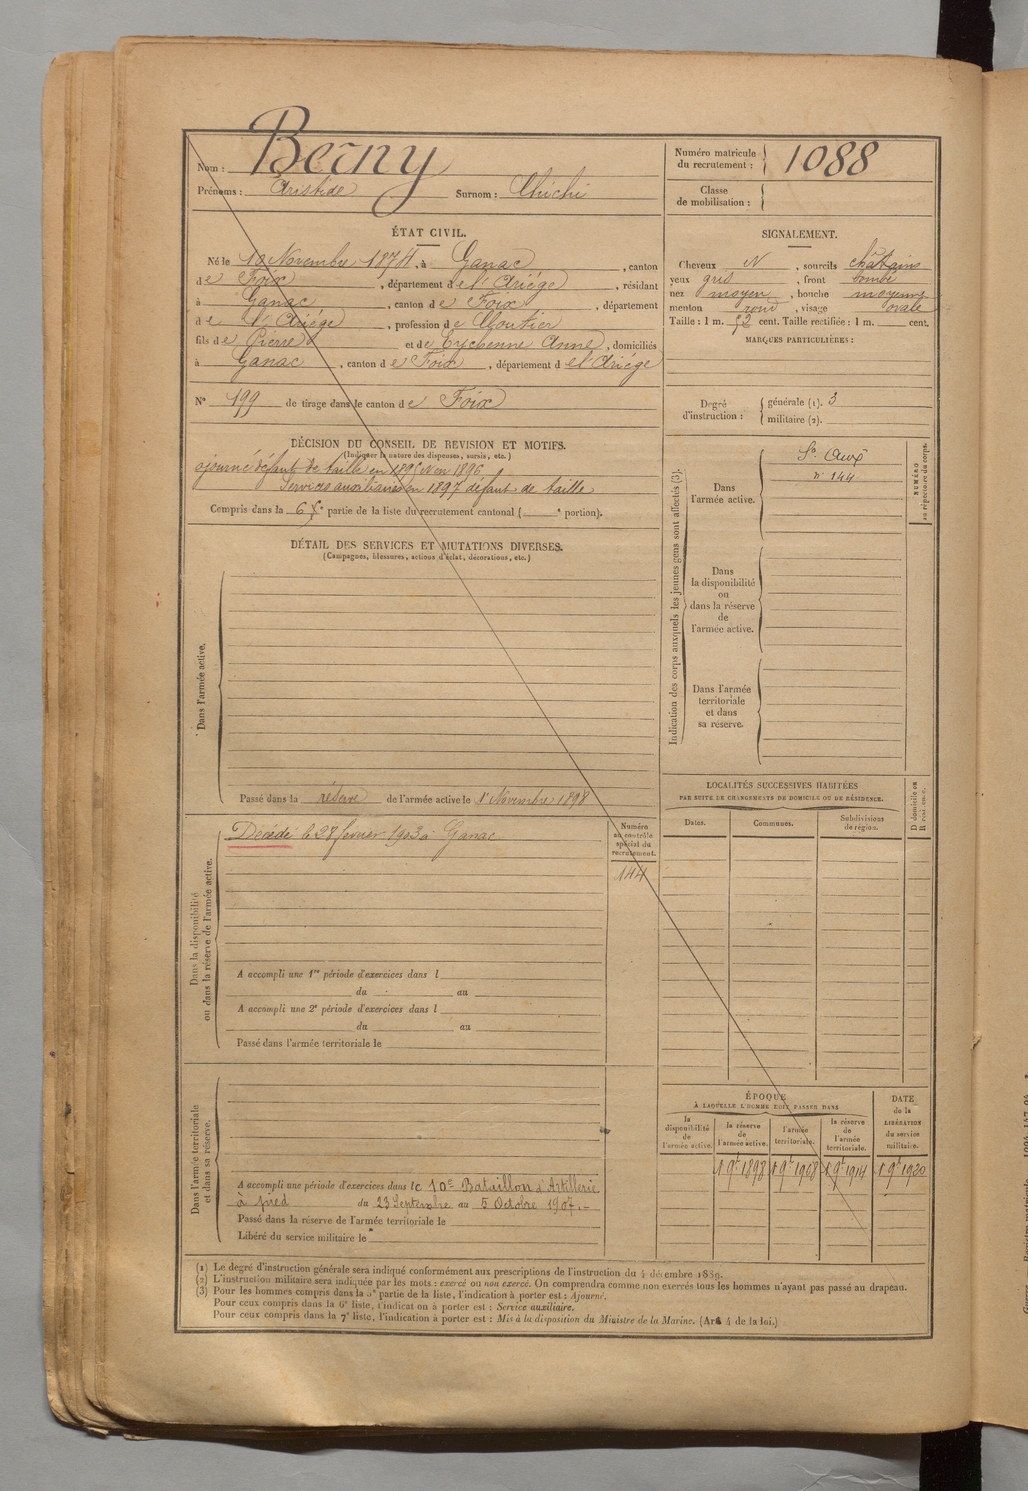 Nom : Berny
Prénoms : Aristide Surnom : Chichi
Numéro matricule du recrutement : 1088
Classe de mobilisation :
ÉTAT CIVIL.
Né le 10 Novembre 1874, à Ganac, canton
de Foix, département de l'Ariége, résidant
à Ganac, canton de Foix, département
de l'Ariége, profession de Cloutier
fils de Pierre et de Eychenne Anne, domiciliés
à Ganac, canton de Foix, département de l'Ariége
N° 199 de tirage dans le canton de Foix
SIGNALEMENT.
Cheveux N, sourcils châtains
yeux gris, front bombé
nez moyen, bouche moyenne
menton rond, visage ovale
Taille : 1 m. 52 cent. Taille rectifiée : 1 m. cent.
MARQUES PARTICULIÈRES :
Degré d'instruction : générale (1). 3
militaire (2).
DÉCISION DU CONSEIL DE REVISION ET MOTIFS.
(Indiquer la nature des dispenses, sursis, etc.)
ajourné défaut de taille en 1895 N en 1896
Services auxiliaires en 1897 défaut de taille
Compris dans la 6e partie de la liste du recrutement cantonal ( e portion).
DÉTAIL DES SERVICES ET MUTATIONS DIVERSES.
(Campagnes, blessures, actions d'éclat, décorations, etc.)
Dans l'armée active.
Passé dans la réserve de l'armée active le 1er Novembre 1898
Indication des corps auxquels les jeunes gens sont affectés (3).
Dans l'armée active.
Sce Auxre
n° 144
NUMÉRO au répertoire du corps.
Dans la disponibilité ou dans la réserve de l'armée active.
Dans l'armée territoriale et dans sa réserve.
LOCALITÉS SUCCESSIVES HABITÉES
PAR SUITE DE CHANGEMENTS DE DOMICILE OU DE RÉSIDENCE.
Dates. Communes. Subdivisions de région.
Dans la disponibilité ou dans la réserve de l'armée active.
Décédé le 28 février 1903 à Ganac
Numéro au contrôle spécial du recrutement.
144
A accompli une 1re période d'exercices dans l
du au
A accompli une 2e période d'exercices dans l
du au
Passé dans l'armée territoriale le
Dans l'armée territoriale et dans sa réserve.
A accompli une période d'exercices dans le 10e Bataillon d'Artillerie
à pied du 23 Septembre au 5 Octobre 1907.-
Passé dans la réserve de l'armée territoriale le
Libéré du service militaire le
ÉPOQUE
À LAQUELLE L'HOMME DOIT PASSER DANS
la disponibilité de l'armée active.
la réserve de l'armée active.
l'armée territoriale.
la réserve de l'armée territoriale.
DATE de la LIBÉRATION du service militaire.
1 9bre 1898 1 9bre 1908 1 9bre 1914 1 9bre 1920
(1) Le degré d'instruction générale sera indiqué conformément aux prescriptions de l'instruction du 4 décembre 1889.
(2) L'instruction militaire sera indiquée par les mots : exercé ou non exercé. On comprendra comme non exercés tous les hommes n'ayant pas passé au drapeau.
(3) Pour les hommes compris dans la 5e partie de la liste, l'indication à porter est : Ajourné.
Pour ceux compris dans la 6e liste, l'indication à porter est : Service auxiliaire.
Pour ceux compris dans la 7e liste, l'indication à porter est : Mis à la disposition du Ministre de la Marine. (Art. 4 de la loi.)